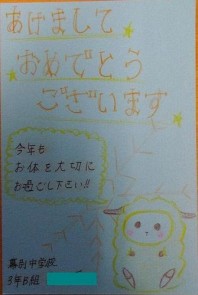 あけまして
おめでとう
ございます
今年も
お体を大切に
お過ごし下さい!!
幕別中学校
3年B組